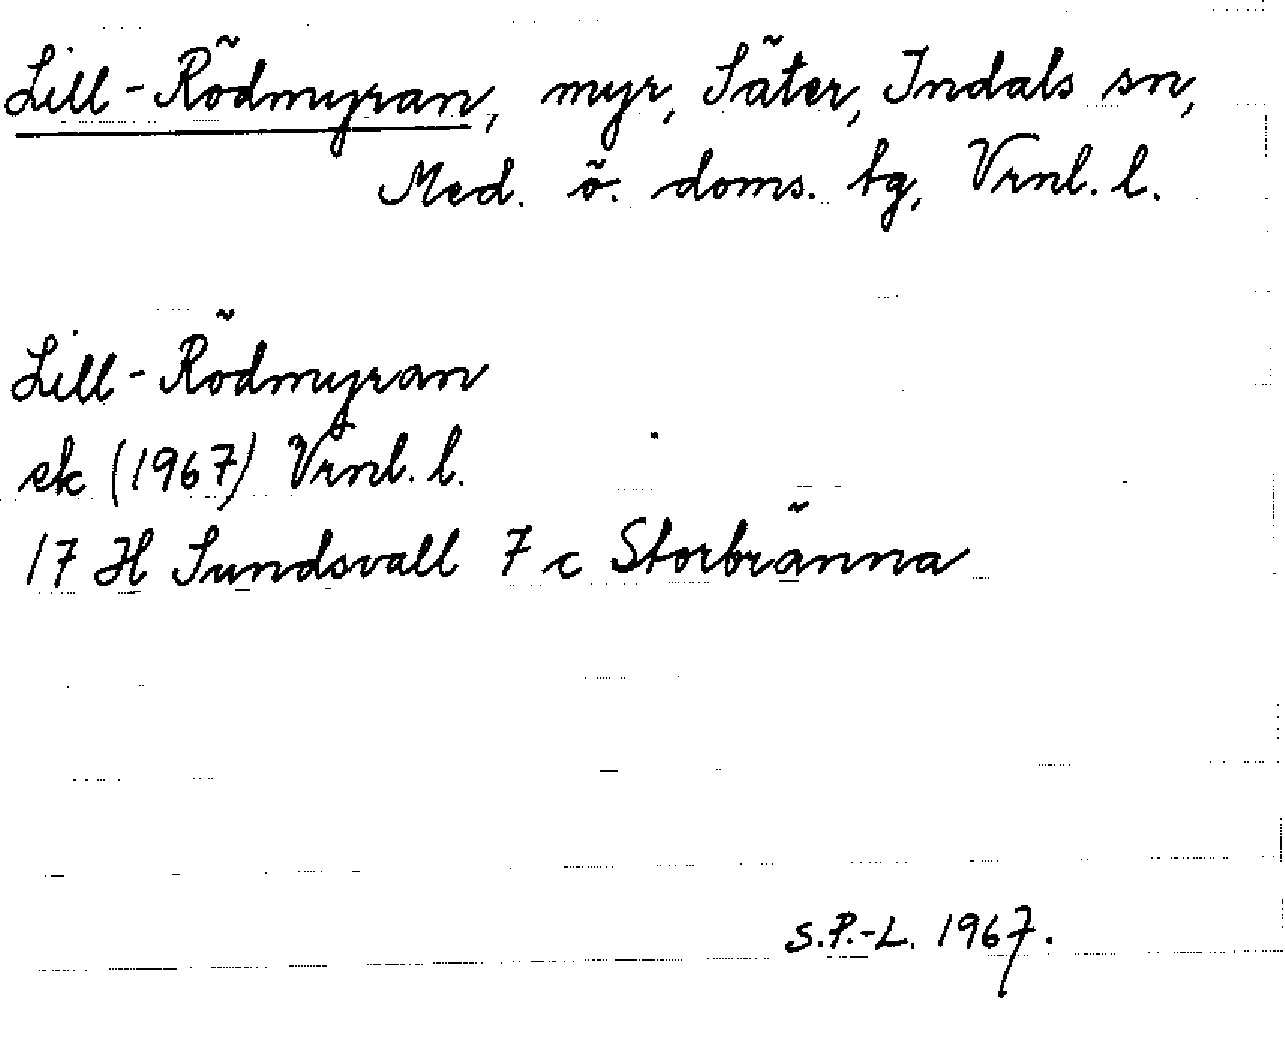 Lill-Rödmyran, myr, Säter, Indals sn,
Med. ö. doms. tg, Vrnl. l.
Lill-Rödmyran
ek (1967) Vrnl. l.
17 H Sundsvall 7 c Storbränna
S.P.-L. 1967.